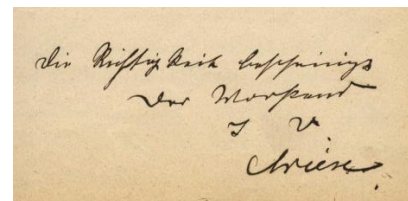 Die Richtigkeit bescheinigt
Der Vorstand
I V